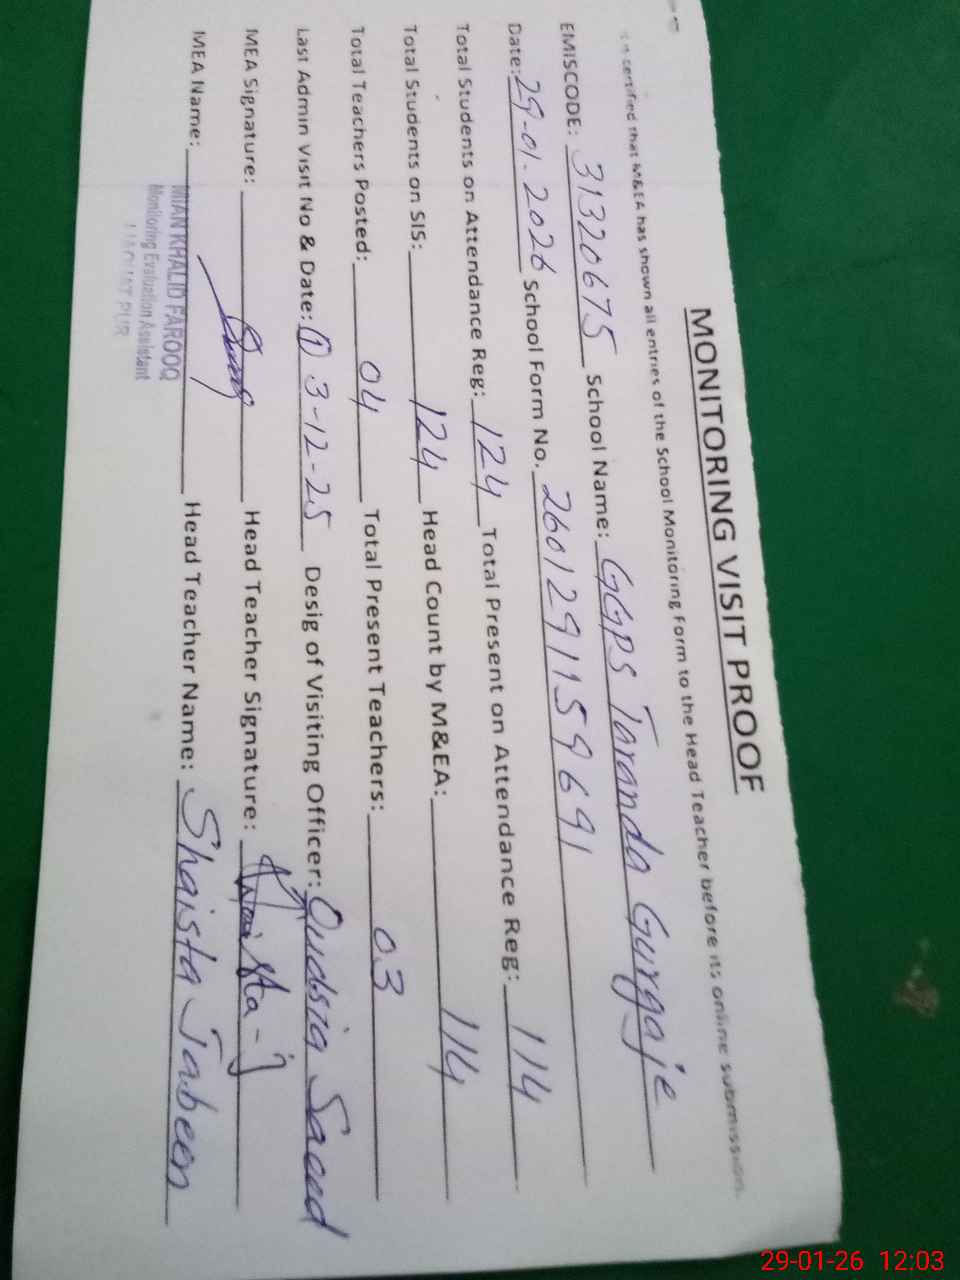 MONITORING VISIT PROOF
certified that M&EA has shown all entries of the School Monitoring Form to the Head Teacher before its online submission.
EMISCODE: 31320675 School Name: GGPS Taranda Gurgaje
Date: 29-01-2026 School Form No. 260129115969 1
Total Students on Attendance Reg: 124 Total Present on Attendance Reg: 114
Total Students on SIS: 124 Head Count by M&EA: 114
Total Teachers Posted: 04 Total Present Teachers: 03
Last Admin Visit No & Date: (1) 3-12-25 Desig of Visiting Officer: Qudsia Saeed
MEA Signature: Head Teacher Signature: Shaista-J
MEA Name: MIAN KHALID FAROOQ Head Teacher Name: Shaista Jabeen
Monitoring Evaluation Assistant
LIAQUAT PUR
29-01-26 12:03